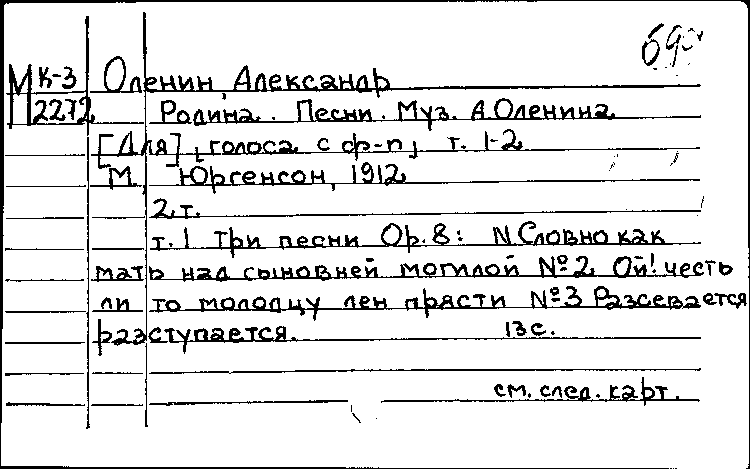 69-
М К-3 Оленин, Александр
2272 Родина. Песни. Муз. А. Оленина
[Для] голоса с ф-п, т. 1-2
М., Юргенсон, 1912
2 т.
т. 1 Три песни Op. 8: N Словно как
мать над сыновней могилой №2 Ой! честь
ли то молодцу лен прясти №3 Разсевается
разступается. 13 с.
см. след. карт.